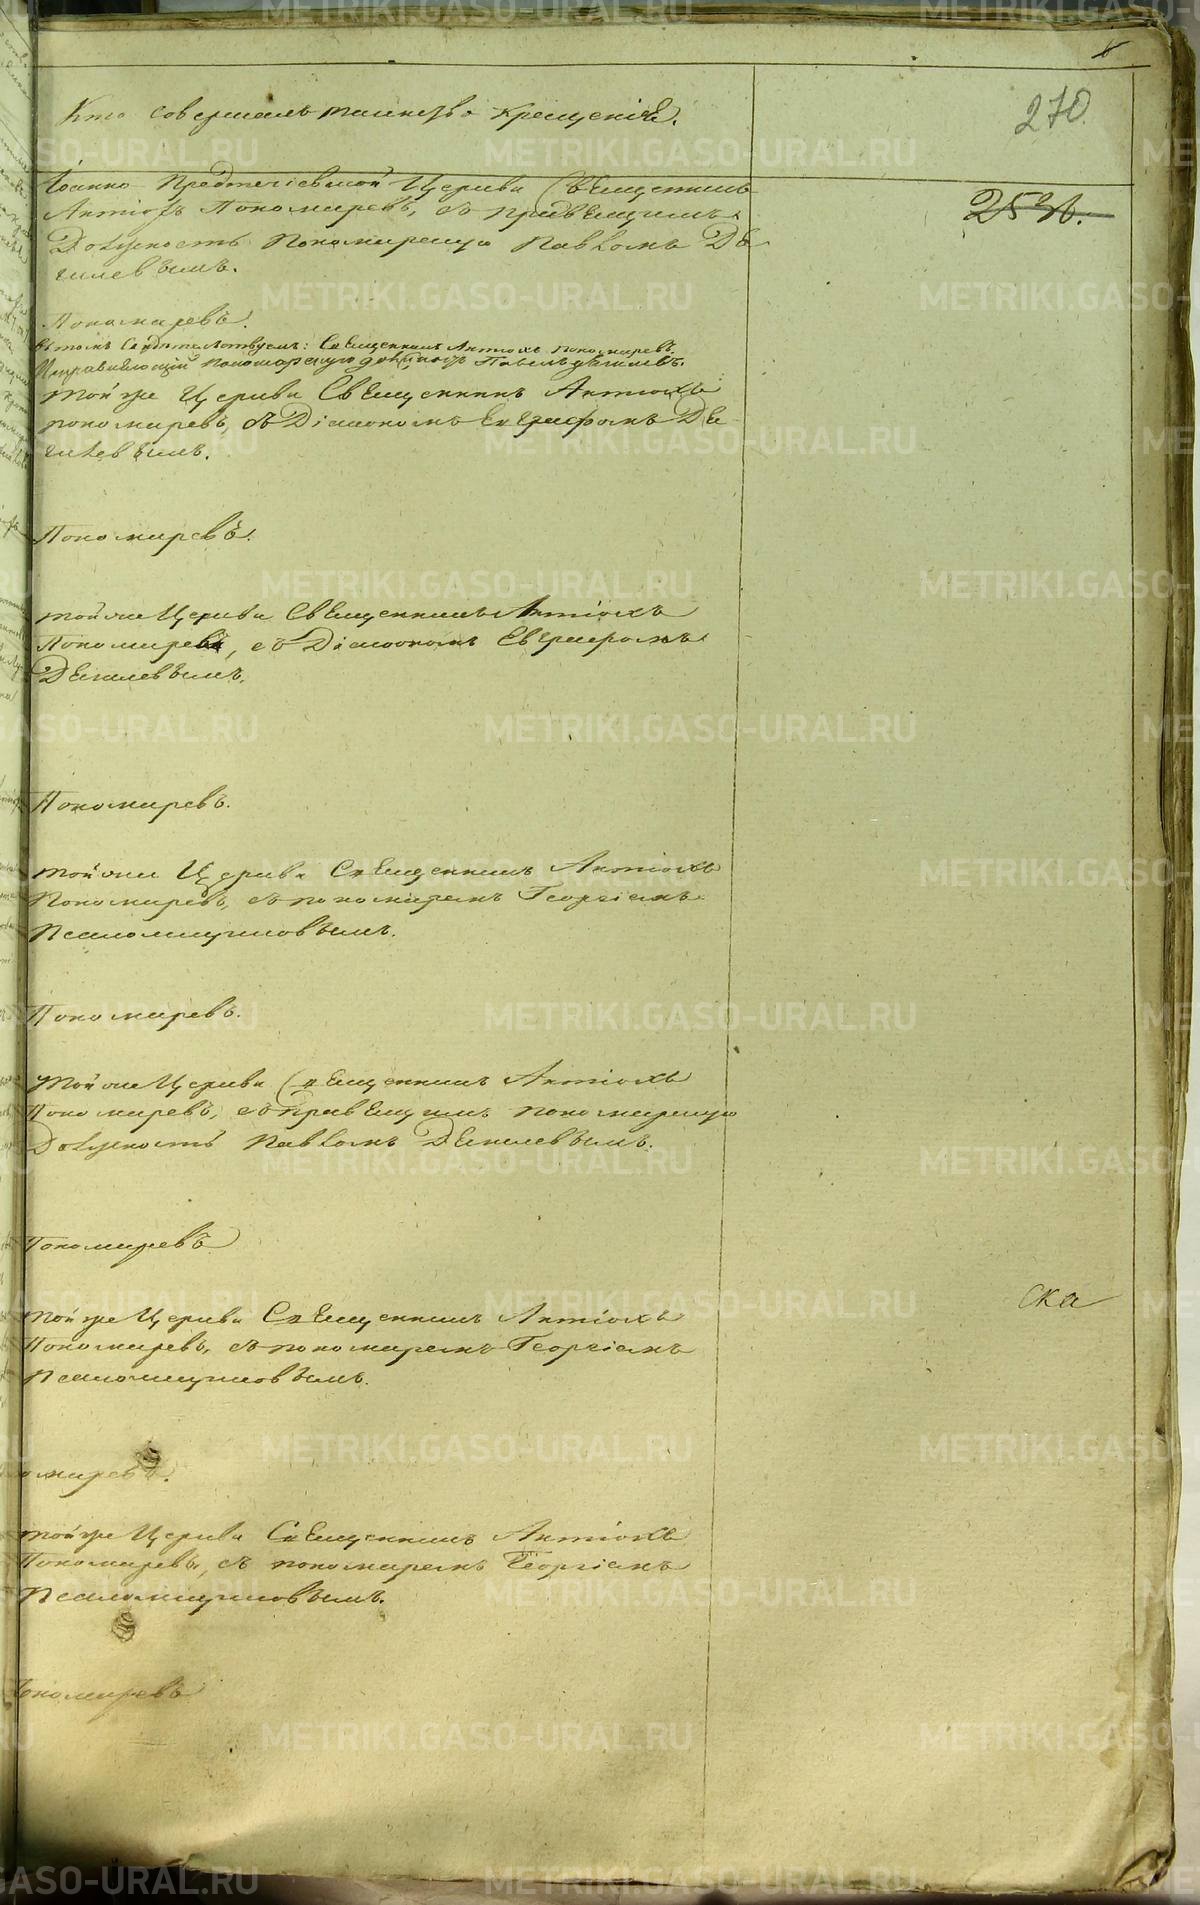 270
Кто совершалъ таинство крещенія.
253
Іоанно Предтечіевской Церкви Священникъ
Антіохъ Пономаревъ, съ правящимъ
Должность Пономарскую Павломъ Де
гилевымъ.
Пономаревъ.
Въ томъ Свидѣтельствуемъ: Священникъ Антіохъ Пономаревъ.
Исправляющій пономарскую должность Павелъ Дягилевъ.
той же Церкви Священникъ Антіохъ
пономаревъ, съ Діакономъ Евграфомъ Де
гилевымъ.
Пономаревъ.
той же Церкви Священникъ Антіохъ
Пономаревъ, съ Діакономъ Евграфомъ
Дегилевымъ.
Пономаревъ.
той же Церкви Священникъ Антіохъ
Пономаревъ, съ пономаремъ Георгіемъ
Псаломщиковымъ.
Пономаревъ.
той же Церкви Священникъ Антіохъ
Пономаревъ, съ правящимъ пономарскую
Должность Павломъ Дегилевымъ.
Пономаревъ
ска
той же Церкви Священникъ Антіохъ
Пономаревъ, съ пономаремъ Георгіемъ
Псаломщиковымъ.
омаревъ.
той же Церкви Священникъ Антіохъ
Пономаревъ, съ пономаремъ Георгіемъ
Псаломщиковымъ.
Пономаревъ
METRIKI.GASO-URAL.RU